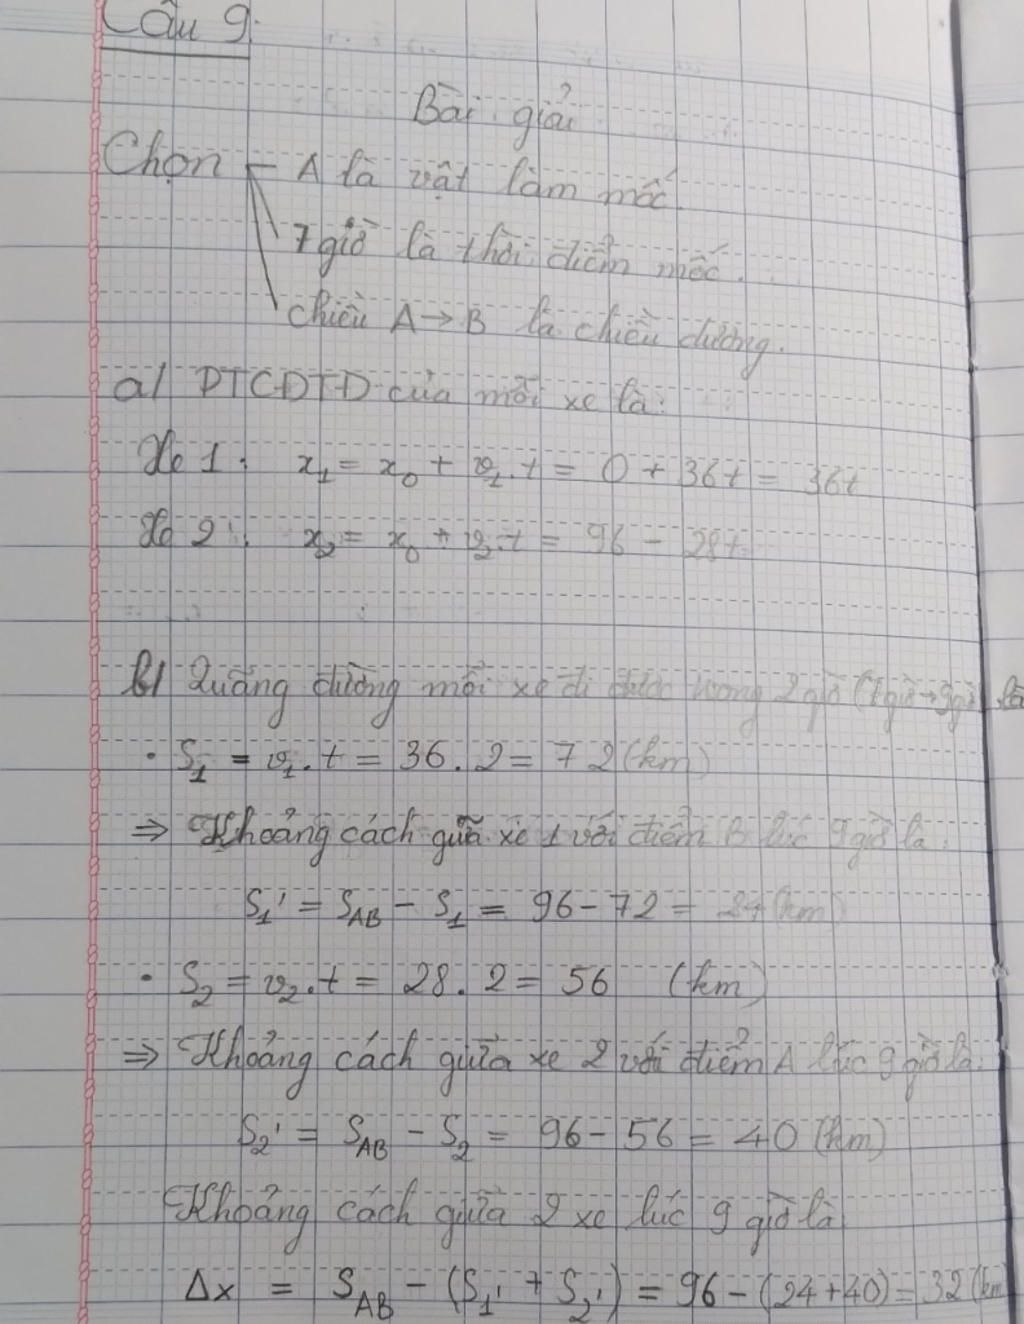 Câu 9.
Bài giải
Chọn – A là vật làm mốc.
7 giờ là thời điểm mốc.
chiều A → B là chiều dương.
a/ PTCĐTD của mỗi xe là:
Xe 1: x₁ = x₀ + v₁.t = 0 + 36t = 36t
Xe 2: x₂ = x₀ + v₂.t = 96 - 28t
b/ Quãng đường mỗi xe đi được trong 2 giờ (7giờ → 9giờ) là
• S₁ = v₁.t = 36.2 = 72 (km)
⇒ Khoảng cách giữa xe 1 với điểm B lúc 9 giờ là:
S₁' = S_AB - S₁ = 96 - 72 = 24 (km)
• S₂ = v₂.t = 28.2 = 56 (km)
⇒ Khoảng cách giữa xe 2 với điểm A lúc 9 giờ là:
S₂' = S_AB - S₂ = 96 - 56 = 40 (km)
Khoảng cách giữa 2 xe lúc 9 giờ là
Δx = S_AB - (S₁' + S₂') = 96 - (24 + 40) = 32 (km